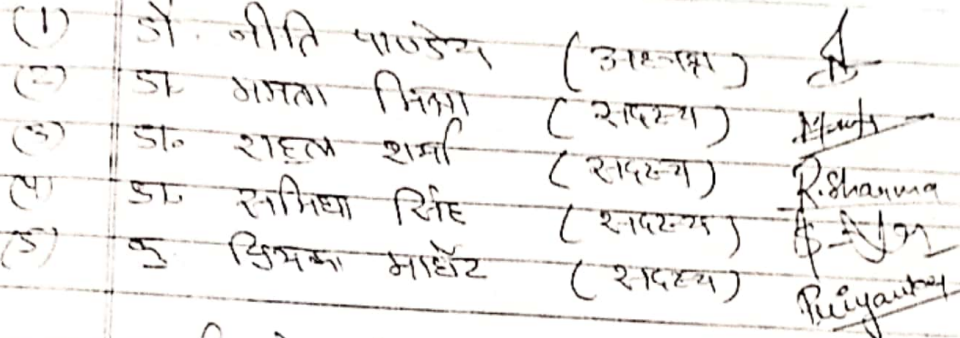 (1) डॉ. नीति पाण्डेय (अध्यक्ष)
(2) डा. ममता मिश्रा (सदस्य)
(3) डा. राहुल शर्मा (सदस्य) R.Sharma
(4) डा. समिधा सिंह (सदस्य)
(5) कु. प्रियंका (सदस्य) Priyanka